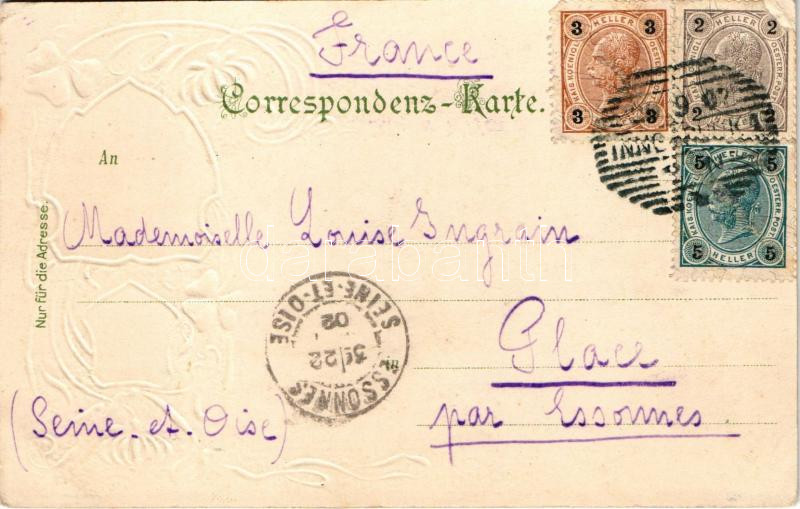 France
Correspondenz-Karte.
3 HELLER 3
KAIS. KOENIGL. OESTERR. POST
3 3
2 HELLER 2
OESTERR. POST
2 2
9 02
INNSBRUCK 1
5 HELLER 5
KAIS. KOENIGL. OESTERR. POST
5 HELLER 5
An
Nur für die Adresse.
Mademoiselle Louise Ingrain
darabanth
ESSONNES
22
02
SEINE-ET-OISE
in
Glace
par Essonnes
(Seine-et-Oise)